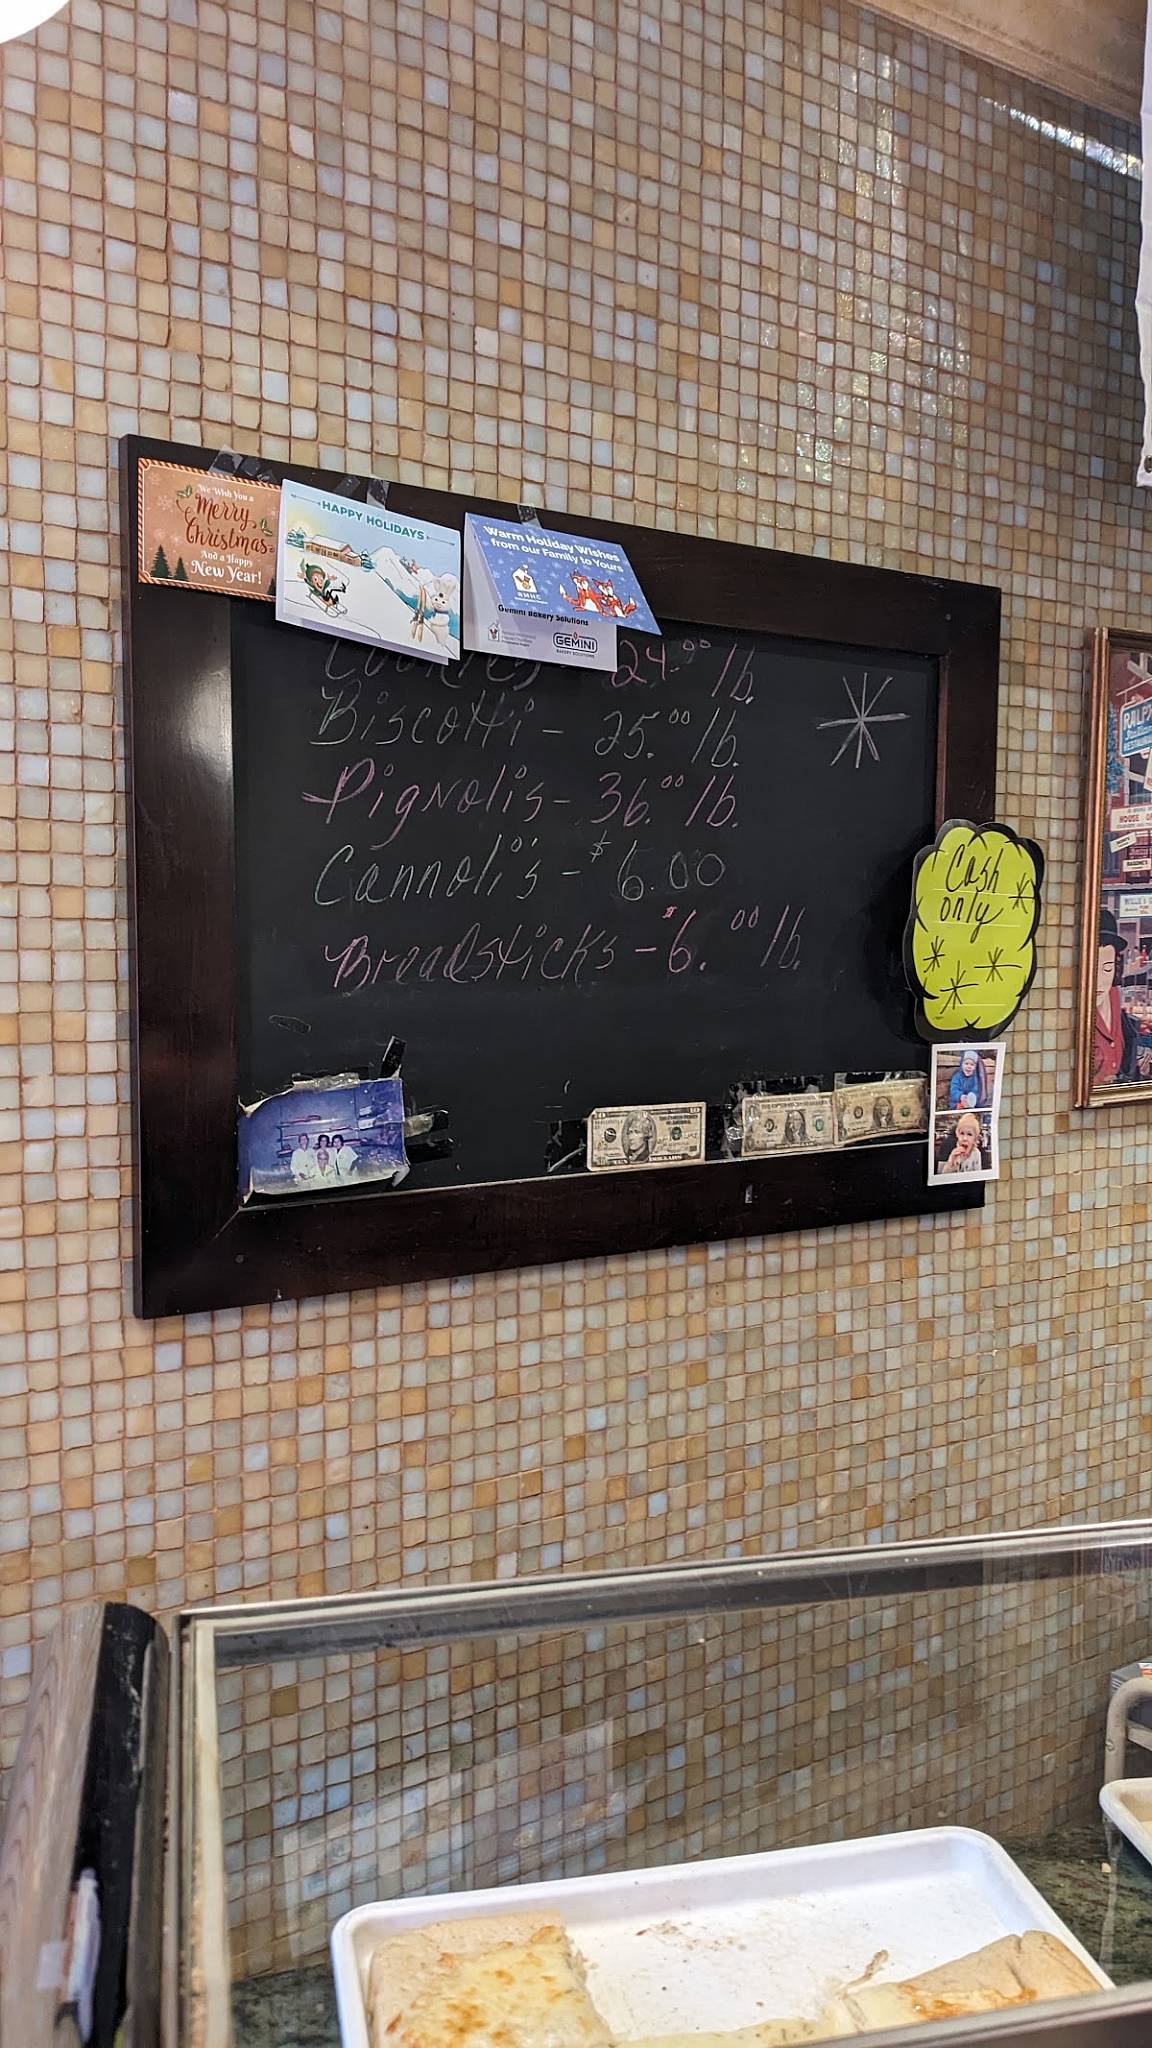 We Wish You a
Merry
Christmas
And a Happy
New Year!
HAPPY HOLIDAYS
Warm Holiday Wishes
from our Family to Yours
RMHC
Gemini Bakery Solutions
GEMINI
BAKERY SOLUTIONS
Cookies 24.00 lb.
Biscotti - 25.00 lb.
Pignoli's - 36.00 lb.
Cannoli's - $6.00
Breadsticks - $6.00 lb.
Cash
only
RALPH'S
HOUSE OF
TEN DOLLARS